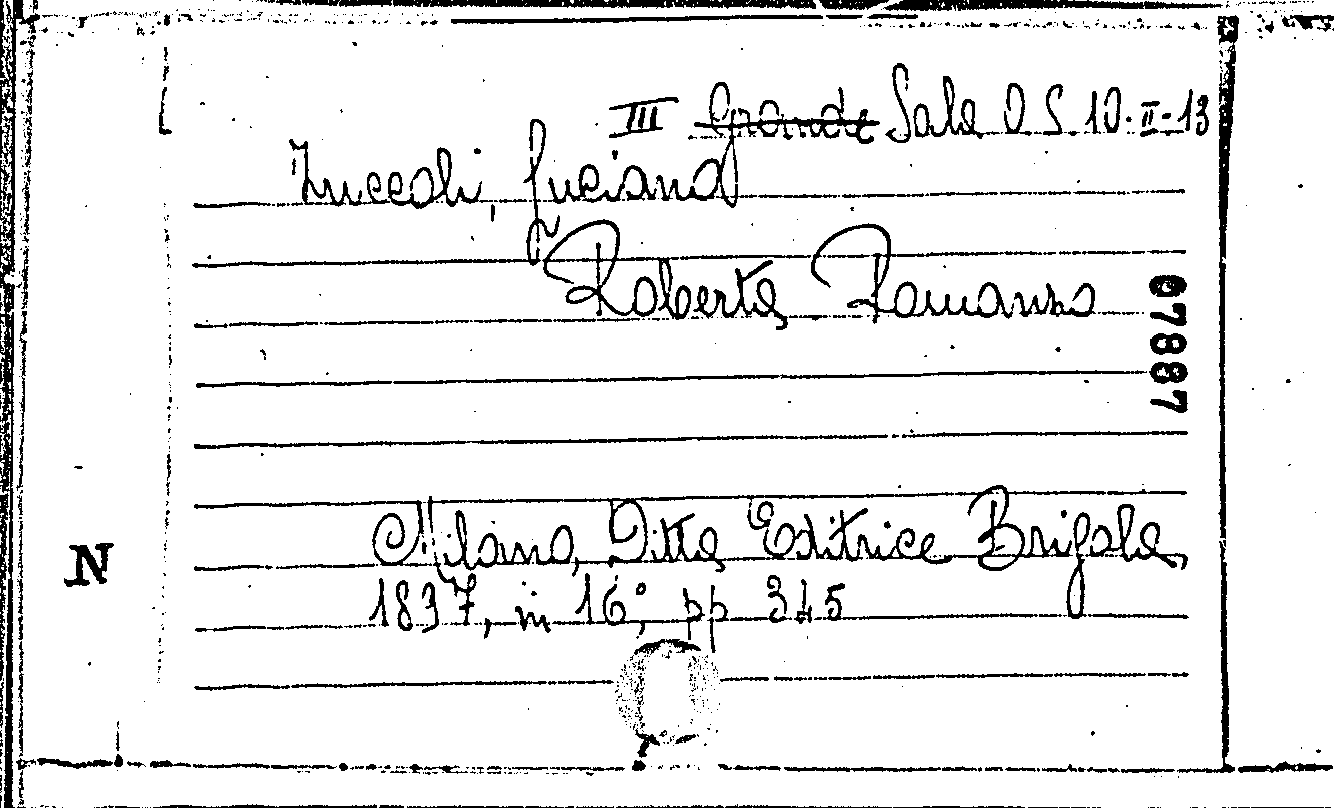 III Grande Sala O S 10-II-13
Zuccoli, Luciano
Roberta Romanzo
67887
Milano, Ditta Editrice Brigola,
N
1837, in 16°, pp 345